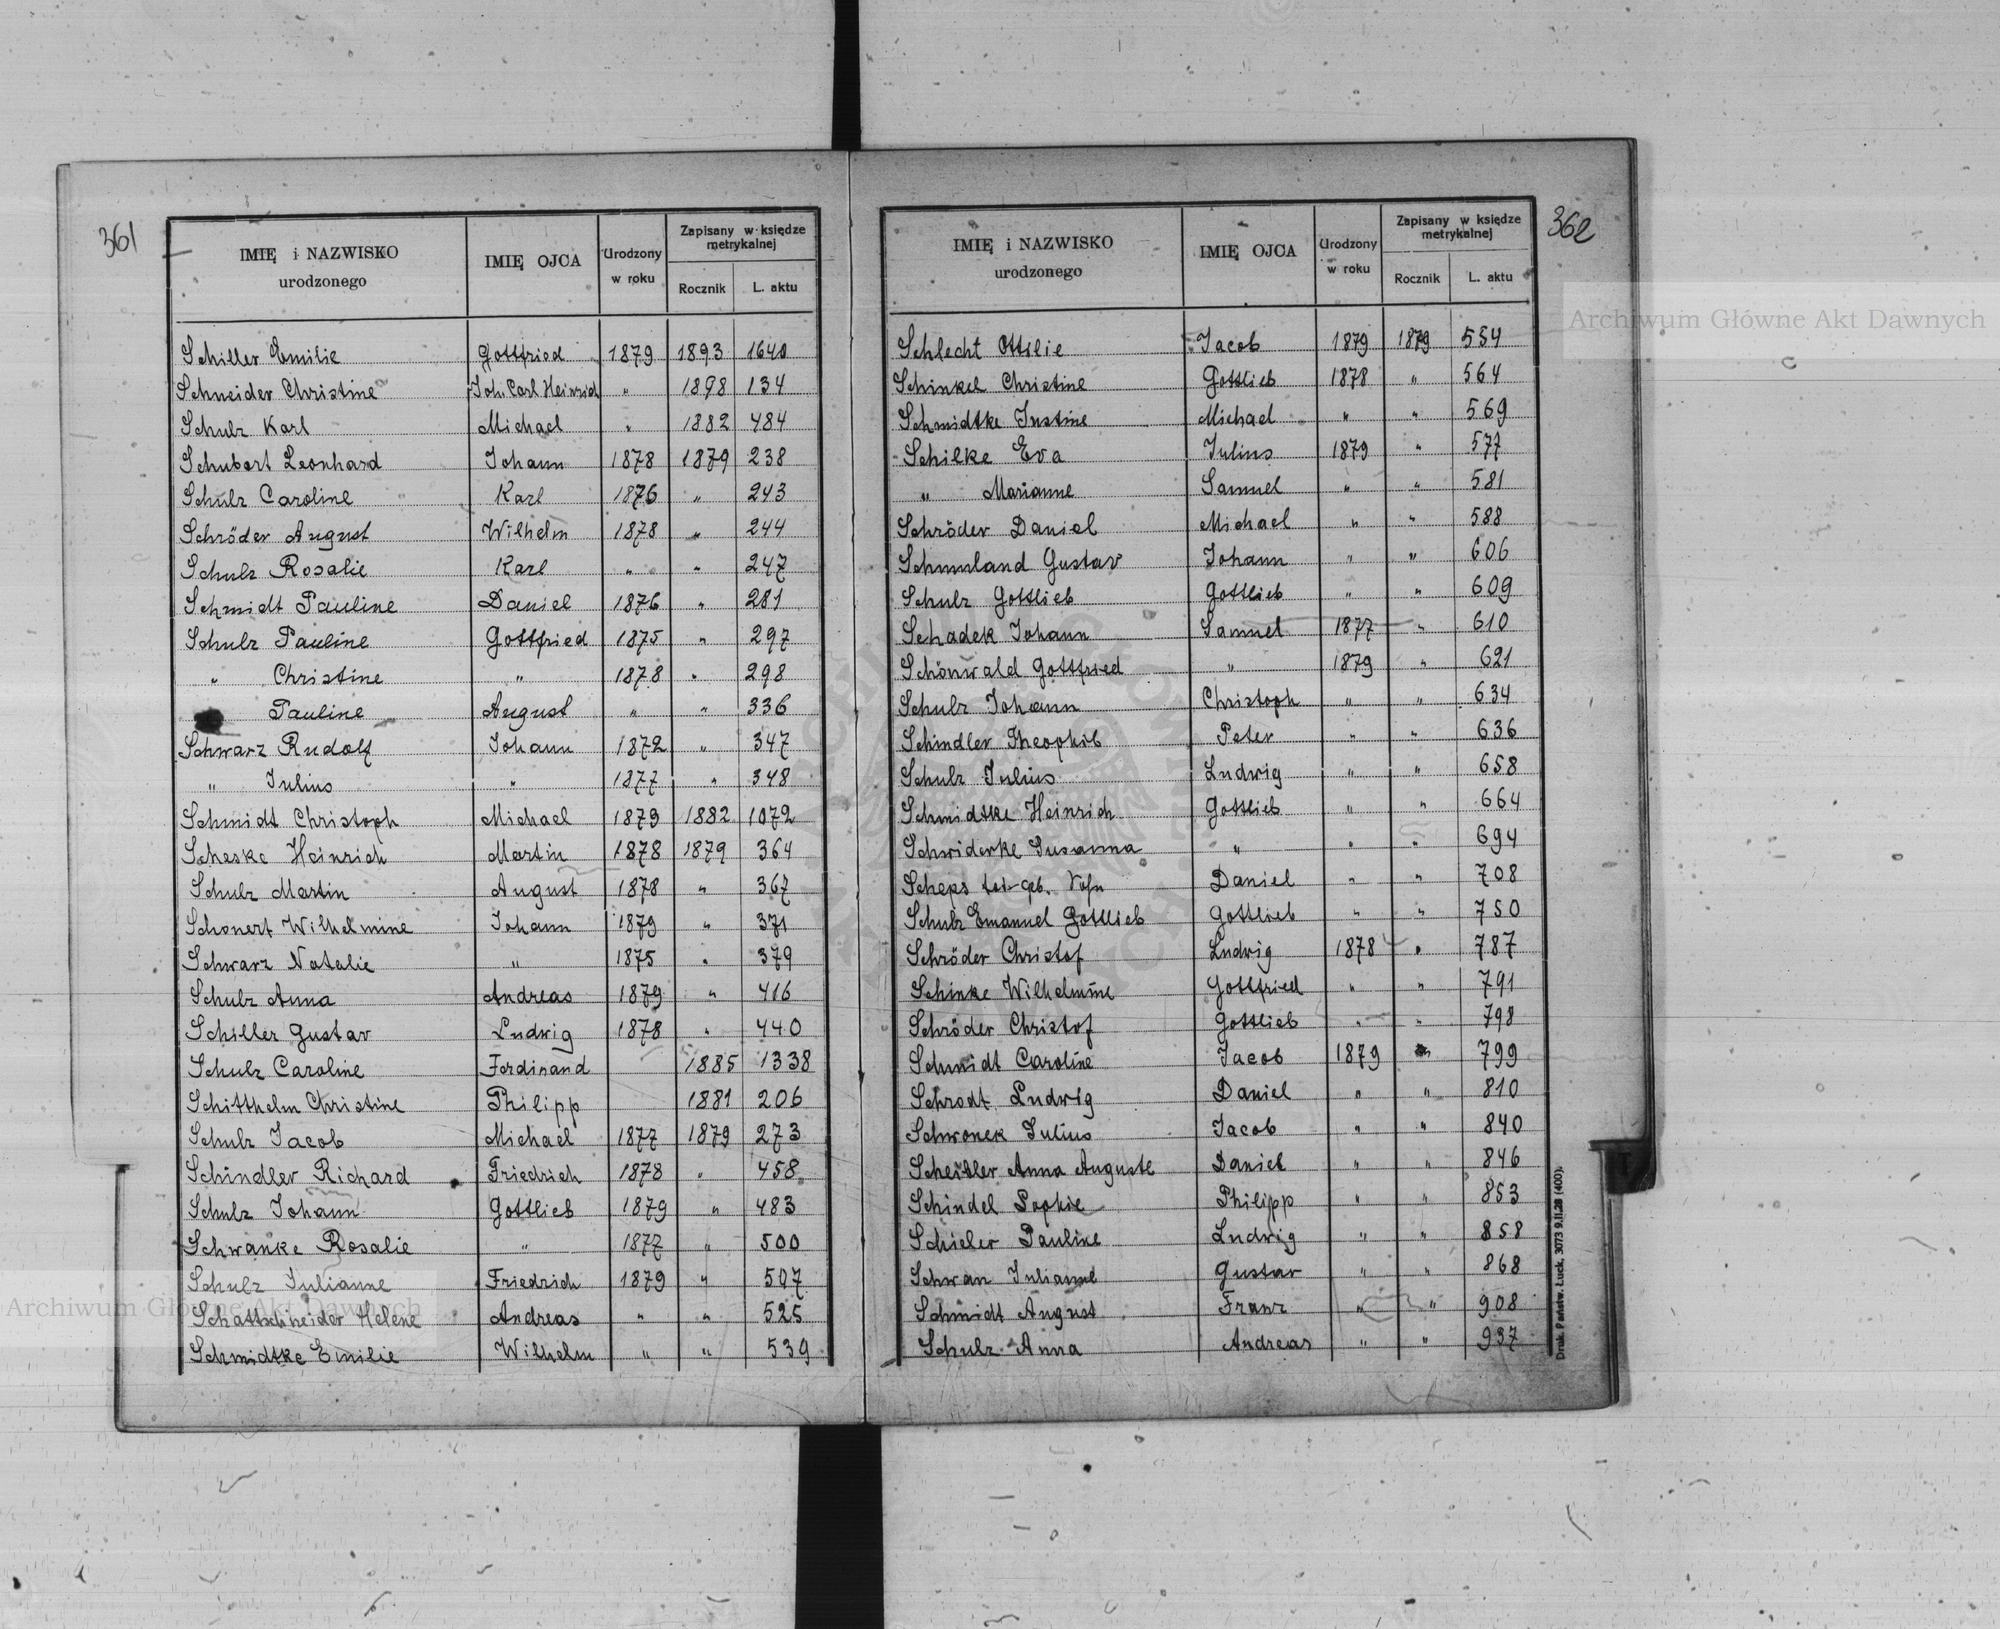 361
IMIĘ i NAZWISKO urodzonego IMIĘ OJCA Urodzony w roku Zapisany w księdze metrykalnej Rocznik L. aktu
Schiller Emilie Gottfried 1879 1893 1640
Schneider Christine Joh. Carl Heinrich " 1898 134
Schulz Karl Michael " 1882 484
Schubert Leonhard Johann 1878 1879 238
Schulz Caroline Karl 1876 " 243
Schröder August Wilhelm 1878 " 244
Schulz Rosalie Karl " " 247
Schmidt Pauline Daniel 1876 " 281
Schulz Pauline Gottfried 1875 " 297
" Christine " 1878 " 298
Pauline August " " 336
Schwarz Rudolf Johann 1872 " 347
" Julius " 1877 " 348
Schmidt Christoph Michael 1879 1882 1072
Scheske Heinrich Martin 1878 1879 364
Schulz Martin August 1878 " 367
Schonert Wilhelmine Johann 1879 " 371
Schwarz Natalie " 1875 " 379
Schulz Anna Andreas 1879 " 416
Schiller Gustav Ludwig 1878 " 440
Schulz Caroline Ferdinand 1885 1338
Schitthelm Christine Philipp 1881 206
Schulz Jacob Michael 1877 1879 273
Schindler Richard Friedrich 1878 " 458
Schulz Johann Gottlieb 1879 " 483
Schwanke Rosalie " 1877 " 500
Schulz Julianne Friedrich 1879 " 507
Schattschneider Helene Andreas " " 525
Schmidtke Emilie Wilhelm " " 539
362
IMIĘ i NAZWISKO urodzonego IMIĘ OJCA Urodzony w roku Zapisany w księdze metrykalnej Rocznik L. aktu
Schlecht Ottilie Jacob 1879 1879 554
Schinkel Christine Gottlieb 1878 " 564
Schmidtke Justine Michael " " 569
Schilke Eva Julius 1879 " 577
" Marianne Samuel " " 581
Schröder Daniel Michael " " 588
Schmuland Gustav Johann " " 606
Schulz Gottlieb Gottlieb " " 609
Schadek Johann Samuel 1877 " 610
Schönwald Gottfried " 1879 " 621
Schulz Johann Christoph " " 634
Schindler Theophil Peter " " 636
Schulz Julius Ludwig " " 658
Schmidtke Heinrich Gottlieb " " 664
Schwiderke Susanna " " " 694
Scheps tot geb. Daniel " " 708
Schulz Emanuel Gottlieb Gottlieb " " 750
Schröder Christof Ludwig 1878 " 787
Schinke Wilhelmine Gottfried " " 791
Schröder Christof Gottlieb " " 798
Schmidt Caroline Jacob 1879 " 799
Schrodt Ludwig Daniel " " 810
Schwonek Julius Jacob " " 840
Scheitler Anna Auguste Daniel " " 846
Schindel Sophie Philipp " " 853
Schieler Pauline Ludwig " " 858
Schwan Julianne Gustav " " 868
Schmidt August Franz " " 908
Schulz Anna Andreas " " 937
Druk. Państw. Łuck. 3073 9.II.28 (400).
Archiwum Główne Akt Dawnych
Archiwum Główne Akt Dawnych